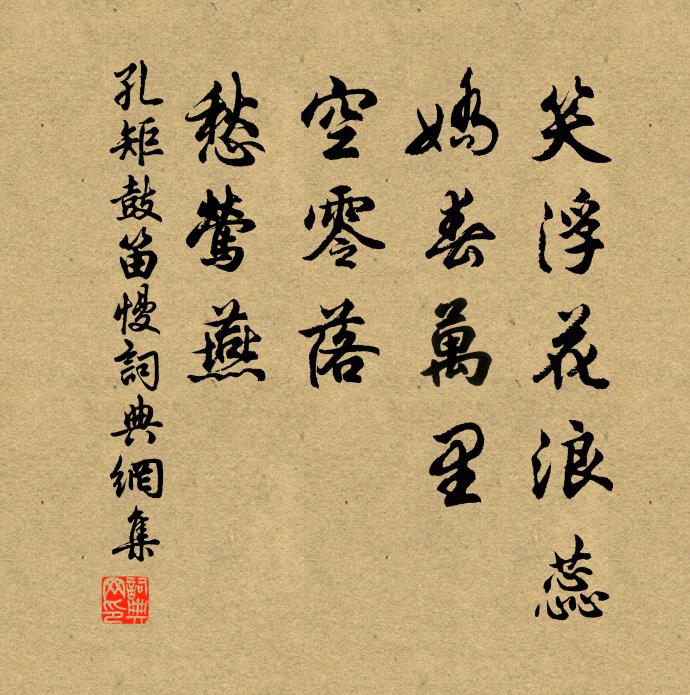 笑浮花浪蕊
嬌春萬里
空零落
愁鶯燕
孔矩鼓笛慢詞典網集
詞典网印